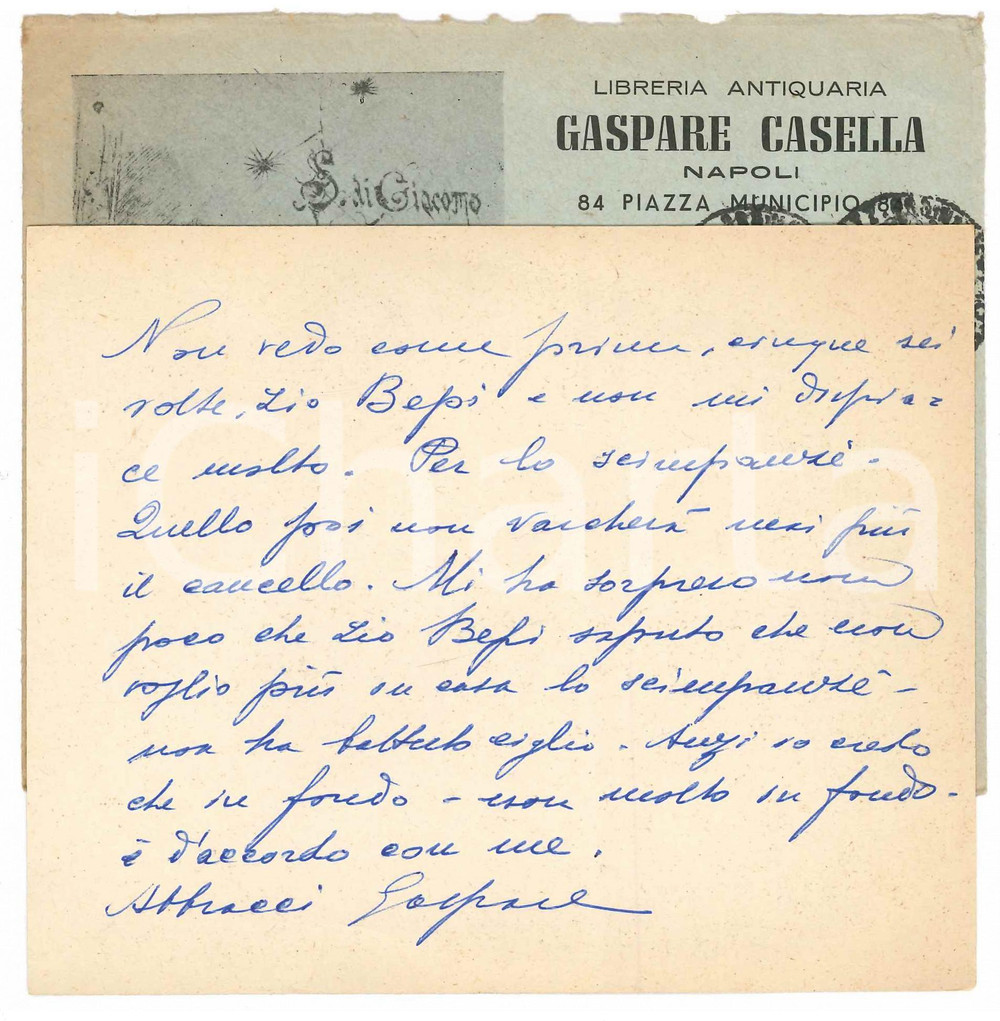 LIBRERIA ANTIQUARIA
GASPARE CASELLA
NAPOLI
84 PIAZZA MUNICIPIO 84
S. di Giacomo
Non vedo come prima, cinque sei
volte, zio Bepi e non mi dispia=
ce molto. Per lo scimpanzé.
Quello poi non varcherà mai più
il cancello. Mi ha sorpreso non
poco che zio Bepi saputo che non
voglio più in casa lo scimpanzé -
non ha battuto ciglio. Anzi io credo
che in fondo - non molto in fondo -
è d'accordo con me.
Abbracci Gaspare
iCharta